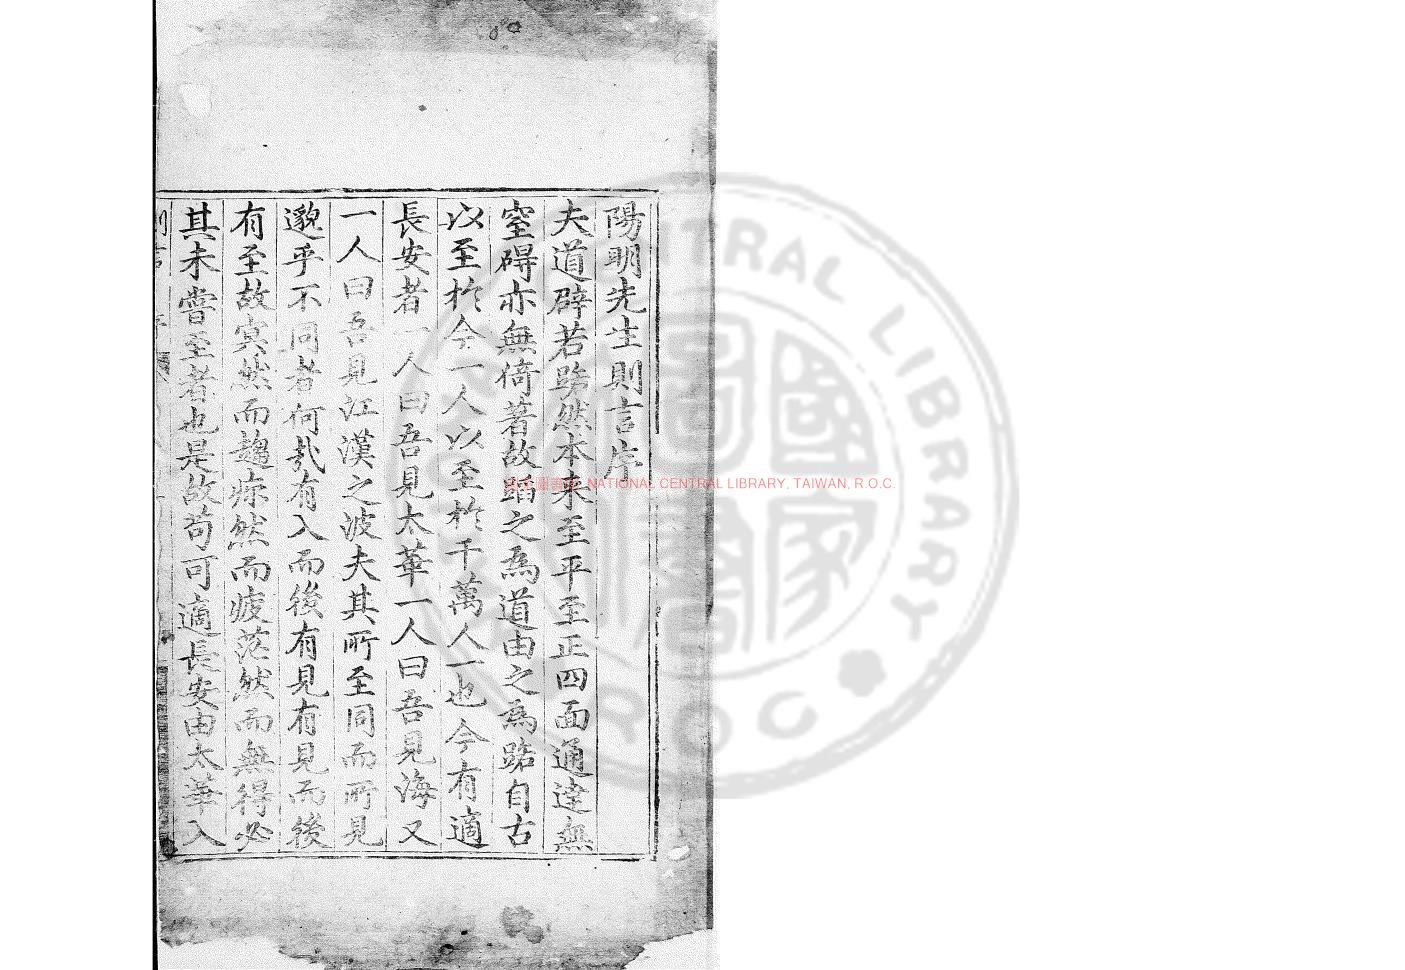 陽明先生則言序
夫道辟若路然本末至平至正四面通達無
窒碍亦無倚著故蹈之為道由之為路自古
以至於今一人以至於千萬人一也今有適
長安者一人曰吾見太華一人曰吾見海又
一人曰吾見江漢之波夫其所至同而所見
邈乎不同者何哉有入而後有見有見而後
有至故冥然而趨㾕然而疲茫然而無得必
其未嘗至者也是故苟可適長安由太華入
則言 序
國家圖書館 NATIONAL CENTRAL LIBRARY, TAIWAN, R.O.C.
CENTRAL LIBRARY
ROC